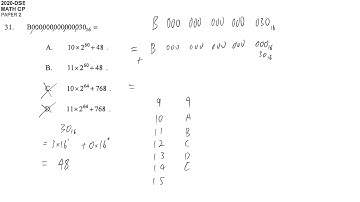 2020-DSE
MATH CP
PAPER 2
31. B000000000000030₁₆ =
A. 10 × 2⁶⁰ + 48 .
B. 11 × 2⁶⁰ + 48 .
C. 10 × 2⁶⁴ + 768 .
D. 11 × 2⁶⁴ + 768 .
30₁₆
= 3×16¹ + 0×16⁰
= 48
B 000 000 000 000 030₁₆
= B 000 000 000 000 000₁₆
+ 30₁₆
=
9 9
10 A
11 B
12 C
13 D
14 C
15